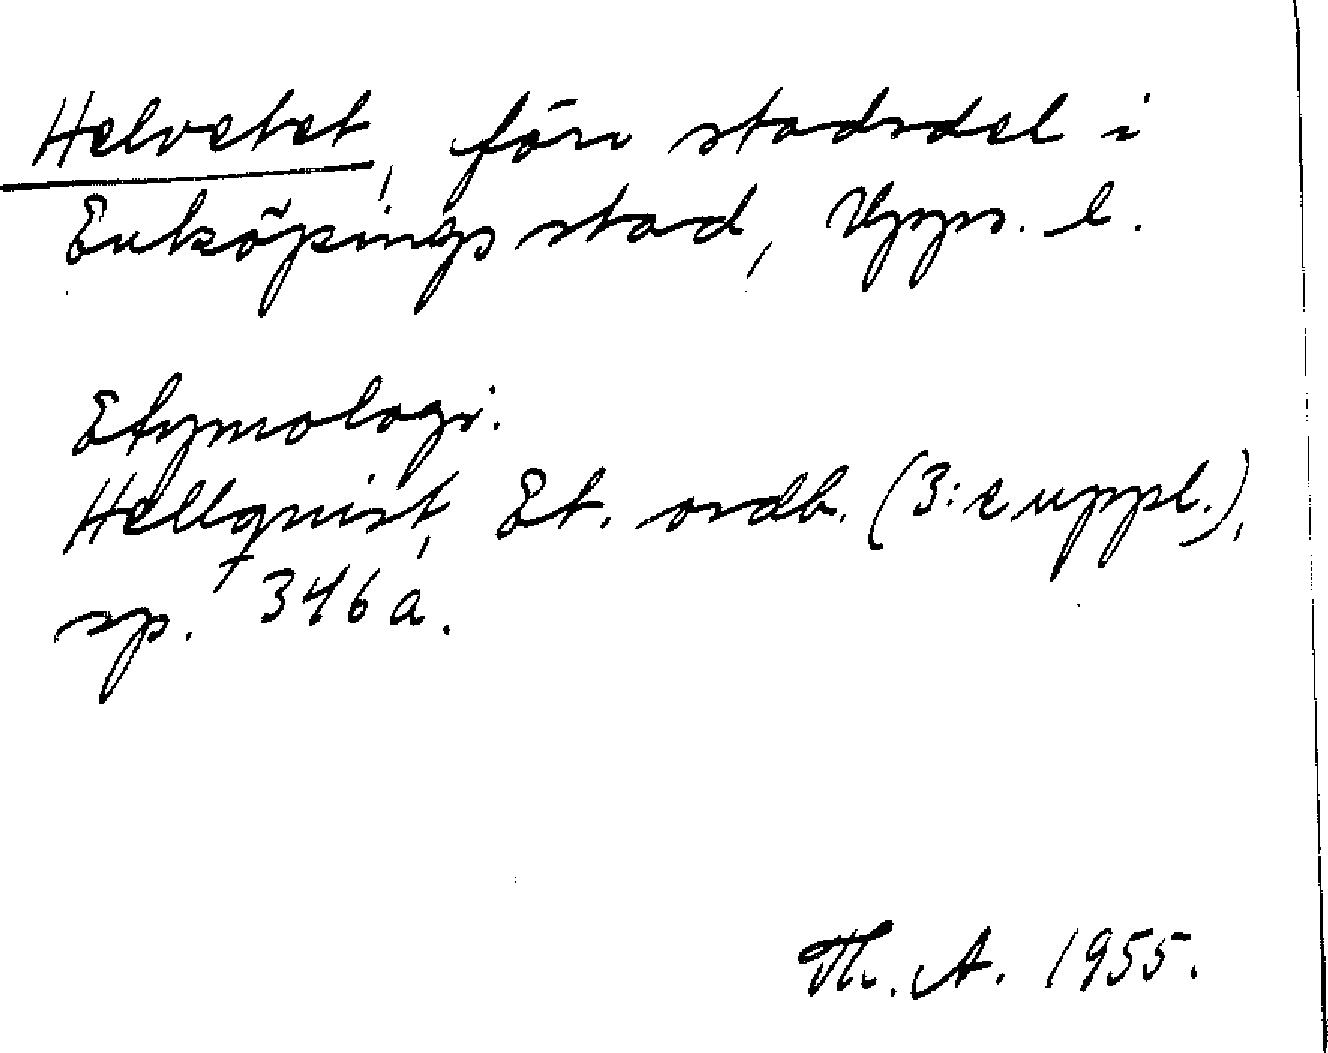 Helvetet, förr stadsdel i
Enköpings stad, Upps. l.
Etymologi.
Hellquist, Et. ordb. (3:e uppl.),
sp. 346 a.
Th. A. 1955.